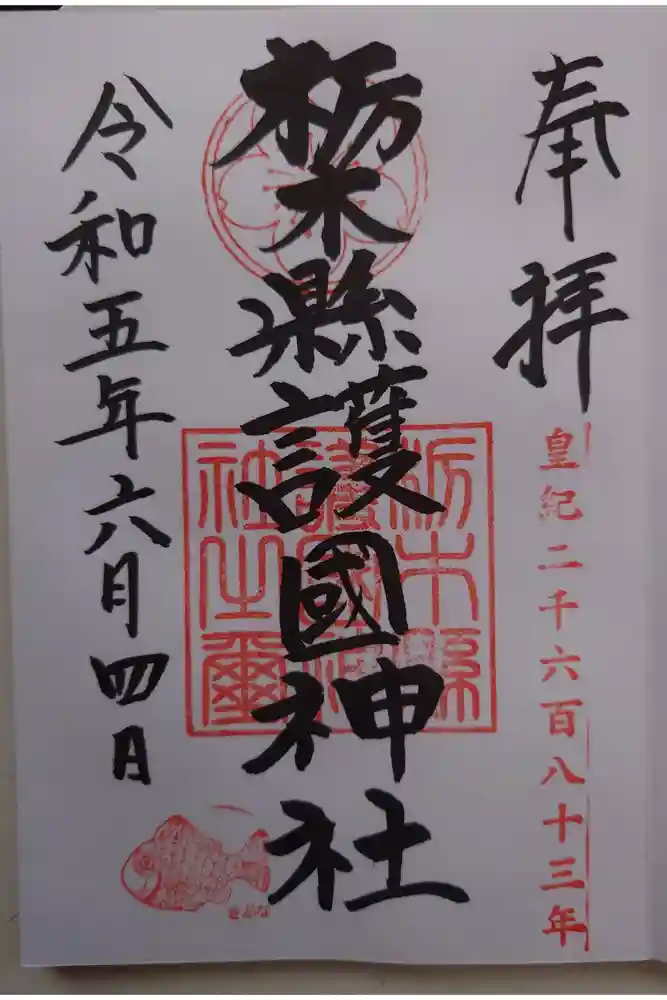 奉拝
皇紀二千六百八十三年
栃木縣護國神社
栃木縣
護國神
社之璽
令和五年六月四日
きぶな